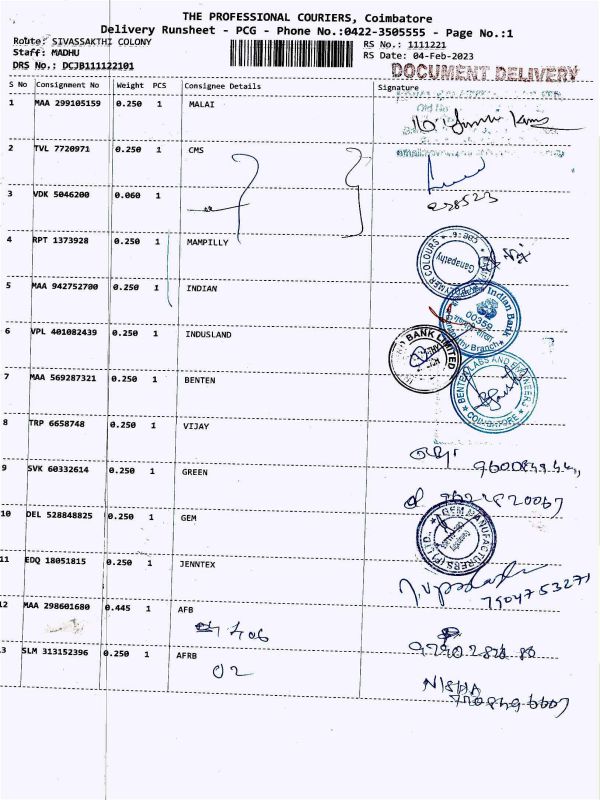 THE PROFESSIONAL COURIERS, Coimbatore
Delivery Runsheet - PCG - Phone No.:0422-3505555 - Page No.:1
Route: SIVASSAKTHI COLONY RS No.: 1111221
Staff: MADHU RS Date: 04-Feb-2023
DRS No.: DCJB111122101
DOCUMENT DELIVERY
S No Consignment No Weight PCS Consignee Details Signature
1 MAA 299105159 0.250 1 MALAI
2 TVL 7720971 0.250 1 CMS
3 VDK 5046200 0.060 1
4 RPT 1373928 0.250 1 MAMPILLY
Ganapathy
5 MAA 942752700 0.250 1 INDIAN
Indian Bank
00359
6 VPL 401082439 0.250 1 INDUSLAND
BANK LIMITED
7 MAA 569287321 0.250 1 BENTEN
BENTEN LABS AND ENGINEERS
COIMBATORE
8 TRP 6658748 0.250 1 VIJAY
9 SVK 60332614 0.250 1 GREEN
10 DEL 528848825 0.250 1 GEM
GEM MANUFACTURERS (P) LTD.
11 EDQ 18051815 0.250 1 JENNTEX
7904753271
12 MAA 298601680 0.445 1 AFB
406
3 SLM 313152396 0.250 1 AFRB
02
NISHA